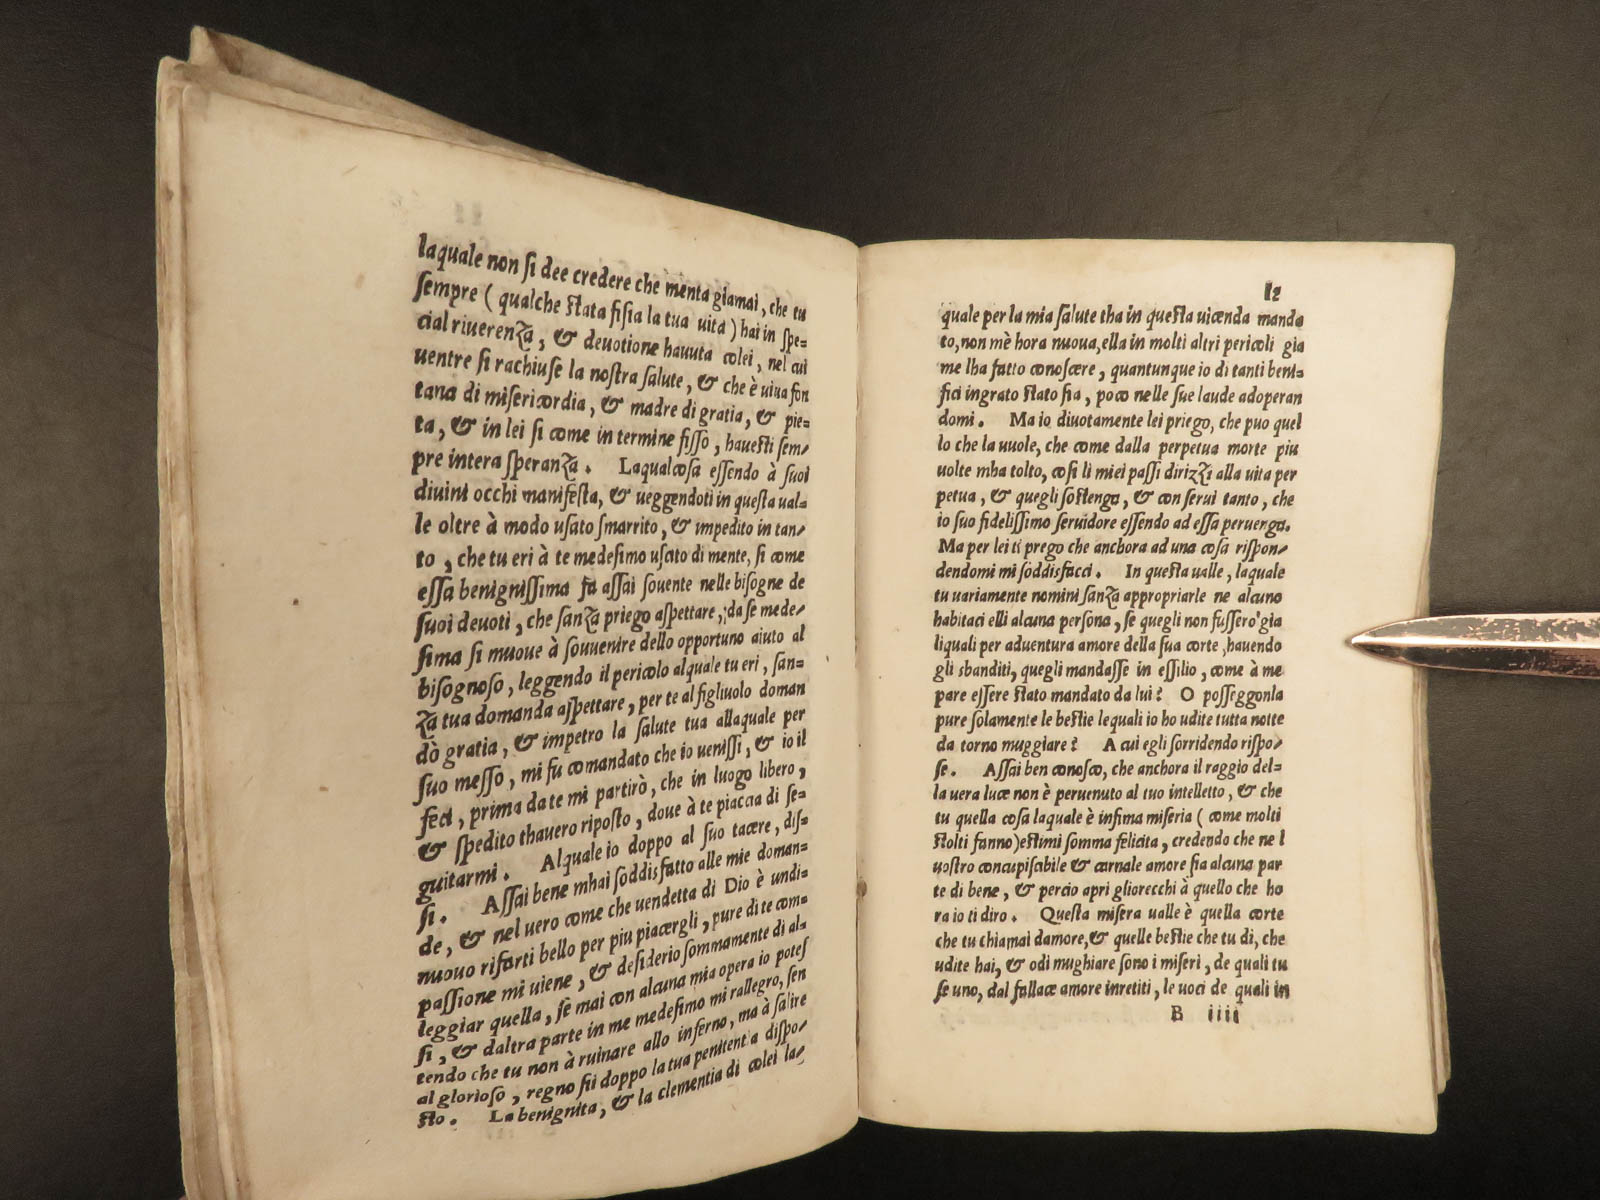 laquale non si dee credere che menta giamai, che tu
sempre ( qualche stata sisia la tua uita ) hai in spe=
cial riuerenza, & deuotione hauuta colei, nel cui
uentre si rachiuse la nostra salute, & che è uiua fon
tana di misericordia, & madre di gratia, & pie=
ta, & in lei si come in termine fisso, hauesti sem/
pre intera speranza. Laqualcosa essendo à suoi
diuini occhi manifesta, & ueggendoti in questa ual=
le oltre à modo usato smarrito, & impedito in tan/
to, che tu eri à te medesimo uscito di mente, si come
essa benignissima fa assai souente nelle bisogne de
suoi deuoti, che sanza priego aspettare, da se mede/
sima si muoue à souuenire dello opportuno aiuto al
bisognoso, leggendo il pericolo alquale tu eri, san=
za tua domanda aspettare, per te al figliuolo doman
dò gratia, & impetro la salute tua allaquale per
suo messo, mi fu comandato che io uenissi, & io il
feci, prima date mi partirò, che in luogo libero,
& spedito thauero riposto, doue à te piaccia di se=
guitarmi. Alquale io doppo al suo tacere, dis=
si. Assai bene mhai soddisfatto alle mie doman=
de, & nel uero come che uendetta di Dio è undi=
nuouo rifarti bello per piu piacergli, pure di te com=
passione mi uiene, & desiderio sommamente di al=
leggiar quella, se mai con alcuna mia opera io potes
si, & daltra parte in me medesimo mi rallegro, sen
tendo che tu non à ruinare allo inferno, ma à salire
al glorioso, regno sii doppo la tua penitentia dispo=
sto. La benignita, & la clementia di colei la/
12
quale per la mia salute tha in questa uicenda manda
to, non mè hora nuoua, ella in molti altri pericoli gia
me lha fatto conoscere, quantunque io di tanti beni=
fici ingrato stato sia, poco nelle sue laude adoperan
domi. Ma io diuotamente lei priego, che puo quel
lo che la uuole, che come dalla perpetua morte piu
uolte mha tolto, cosi li miei passi dirizzi alla uita per
petua, & quegli sostenga, & conserui tanto, che
io suo fidelissimo seruidore essendo ad essa peruenga.
Ma per lei ti prego che anchora ad una cosa rispon/
dendomi mi soddisfacci. In questa ualle, laquale
tu uariamente nomini sanza appropriarle ne alcuno
habitaci elli alcuna persona, se quegli non fussero gia
liquali per aduentura amore della sua corte, hauendo
gli sbanditi, quegli mandasse in essilio, come à me
pare essere stato mandato da lui? O posseggonla
pure solamente le bestie lequali io ho udite tutta notte
da torno muggiare? A cui egli sorridendo rispo/
se. Assai ben conosco, che anchora il raggio del=
la uera luce non è peruenuto al tuo intelletto, & che
tu quella cosa laquale è infima miseria ( come molti
stolti fanno) estimi somma felicita, credendo che ne l
uostro concupiscibile & carnale amore sia alcuna par
te di bene, & percio apri gliorecchi à quello che ho
ra io ti diro. Questa misera ualle è quella corte
che tu chiamai damore, & quelle bestie che tu di, che
udite hai, & odi mughiare sono i miseri, de quali tu
se uno, dal fallace amore inretiti, le uoci de quali in
B iiii